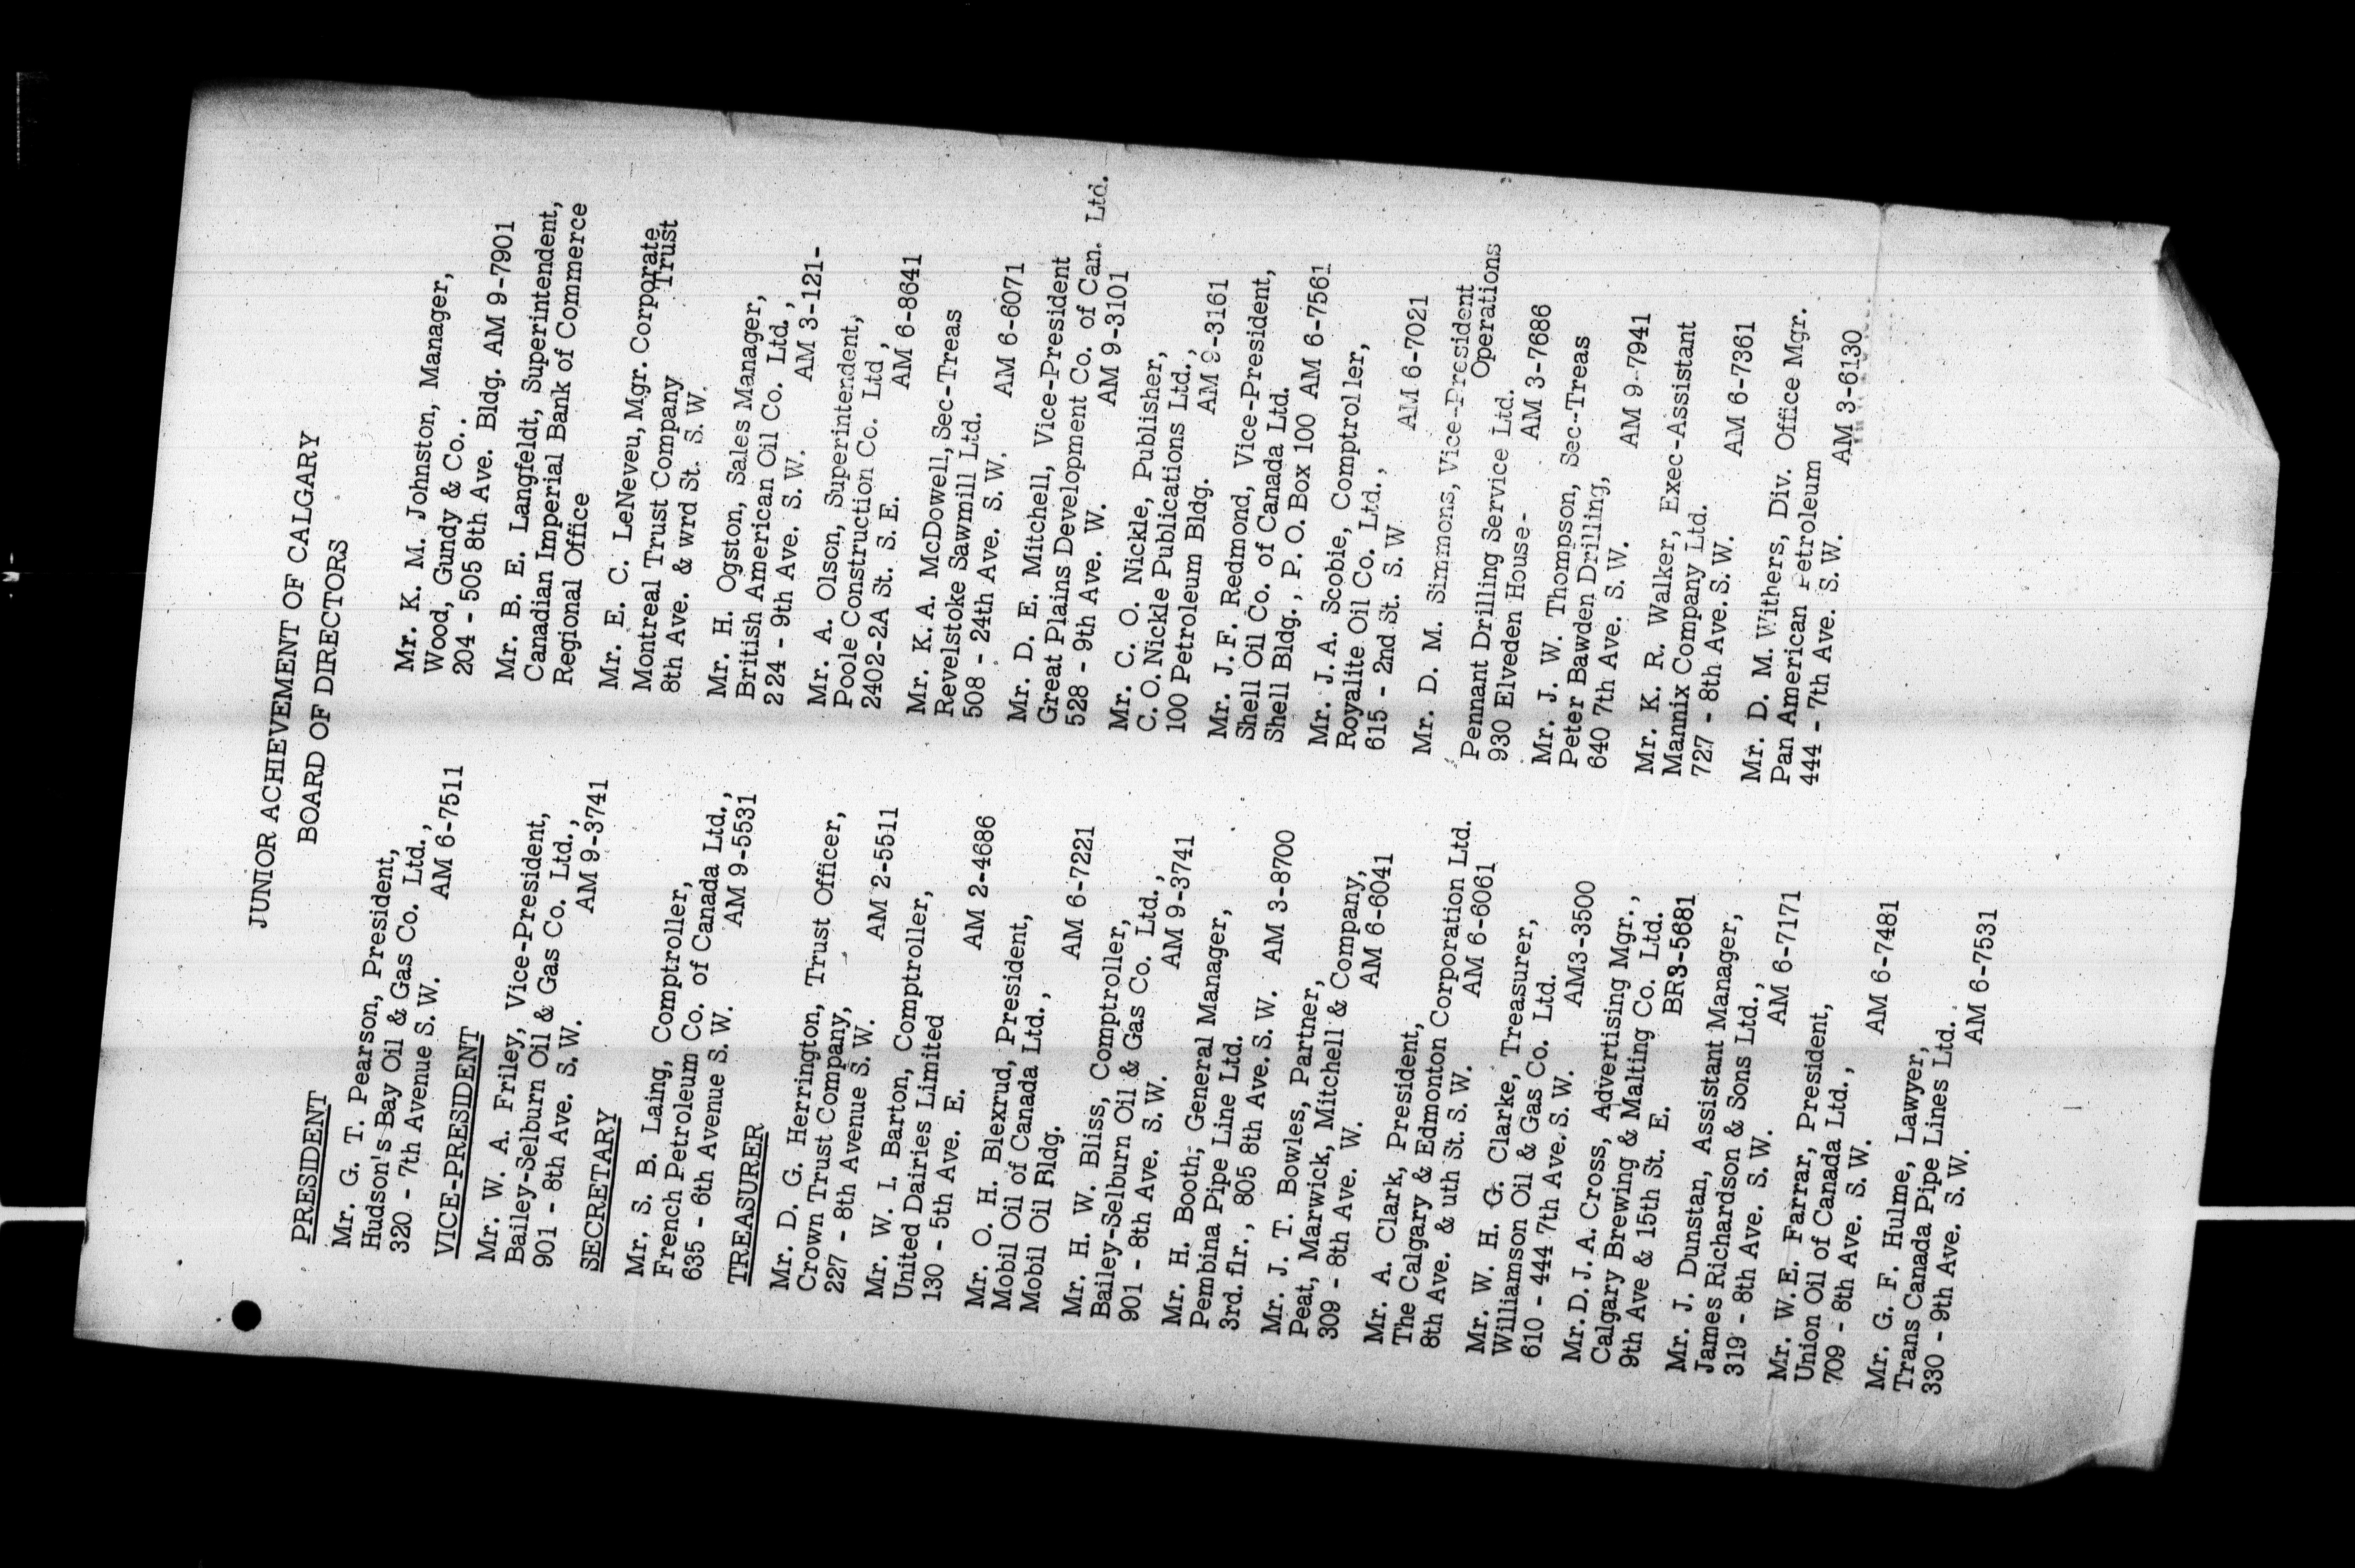 JUNIOR ACHIEVEMENT OF CALGARY
BOARD OF DIRECTORS
PRESIDENT
Mr. G. T. Pearson, President,
Hudson's Bay Oil & Gas Co. Ltd.,
320 - 7th Avenue S. W. AM 6-7511
VICE-PRESIDENT
Mr. W. A. Friley, Vice-President,
Bailey-Selburn Oil & Gas Co. Ltd.,
901 - 8th Ave. S. W. AM 9-3741
SECRETARY
Mr. S. B. Laing, Comptroller,
French Petroleum Co. of Canada Ltd.,
635 - 6th Avenue S. W. AM 9-5531
TREASURER
Mr. D. G. Herrington, Trust Officer,
Crown Trust Company,
227 - 8th Avenue S. W. AM 2-5511
Mr. W. I. Barton, Comptroller,
United Dairies Limited
130 - 5th Ave. E. AM 2-4686
Mr. O. H. Blexrud, President,
Mobil Oil of Canada Ltd.,
Mobil Oil Bldg. AM 6-7221
Mr. H. W. Bliss, Comptroller,
Bailey-Selburn Oil & Gas Co. Ltd.,
901 - 8th Ave. S. W. AM 9-3741
Mr. H. Booth, General Manager,
Pembina Pipe Line Ltd.
3rd. flr., 805 8th Ave. S. W. AM 3-8700
Mr. J. T. Bowles, Partner,
Peat, Marwick, Mitchell & Company,
309 - 8th Ave. W. AM 6-6041
Mr. A. Clark, President,
The Calgary & Edmonton Corporation Ltd.
8th Ave. & uth St. S. W. AM 6-6061
Mr. W. H. G. Clarke, Treasurer,
Williamson Oil & Gas Co. Ltd.
610 - 444 7th Ave. S. W. AM3-3500
Mr. D. J. A. Cross, Advertising Mgr.,
Calgary Brewing & Malting Co. Ltd.
9th Ave & 15th St. E. BR3-5681
Mr. J. Dunstan, Assistant Manager,
James Richardson & Sons Ltd.,
319 - 8th Ave. S. W. AM 6-7171
Mr. W. E. Farrar, President,
Union Oil of Canada Ltd.,
709 - 8th Ave. S. W. AM 6-7481
Mr. G. F. Hulme, Lawyer,
Trans Canada Pipe Lines Ltd.
330 - 9th Ave. S. W. AM 6-7531
Mr. K. M. Johnston, Manager,
Wood, Gundy & Co..
204 - 505 8th Ave. Bldg. AM 9-7901
Mr. B. E. Langfeldt, Superintendent,
Canadian Imperial Bank of Commerce
Regional Office
Mr. E. C. LeNeveu, Mgr. Corporate
Trust
Montreal Trust Company
8th Ave. & wrd St. S. W.
Mr. H. Ogston, Sales Manager,
British American Oil Co. Ltd.,
224 - 9th Ave. S. W. AM 3-121-
Mr. A. Olson, Superintendent,
Poole Construction Co. Ltd,
2402-2A St. S. E. AM 6-8641
Mr. K. A. McDowell, Sec-Treas
Revelstoke Sawmill Ltd.
508 - 24th Ave. S. W. AM 6-6071
Mr. D. E. Mitchell, Vice-President
Great Plains Development Co. of Can. Ltd.
528 - 9th Ave. W. AM 9-3101
Mr. C. O. Nickle, Publisher,
C. O. Nickle Publications Ltd.,
100 Petroleum Bldg. AM 9-3161
Mr. J. F. Redmond, Vice-President,
Shell Oil Co. of Canada Ltd.
Shell Bldg., P. O. Box 100 AM 6-7561
Mr. J. A. Scobie, Comptroller,
Royalite Oil Co. Ltd.,
615 - 2nd St. S. W AM 6-7021
Mr. D. M. Simmons, Vice-President
Operations
Pennant Drilling Service Ltd.
930 Elveden House - AM 3-7686
Mr. J. W. Thompson, Sec-Treas
Peter Bawden Drilling,
640 7th Ave. S. W. AM 9-7941
Mr. K. R. Walker, Exec-Assistant
Mannix Company Ltd.
727 - 8th Ave. S. W. AM 6-7361
Mr. D. M. Withers, Div. Office Mgr.
Pan American Petroleum
444 - 7th Ave. S. W. AM 3-6130